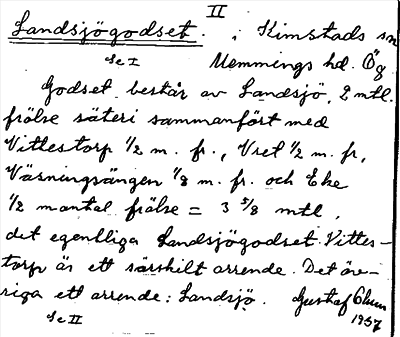 II
Landsjögodset. i Kimstads sn
Se I Memmings hd. Ög.
Godset består av Landsjö, 2 mtl.
frälse säteri sammanfört med
Vittestorp 1/2 m. fr., Vret 1/2 m. fr,
Väsningsängen 1/8 m. fr. och Eke
1/2 mantal frälse = 3 5/8 mtl,
det egentliga Landsjögodset. Vittes-
torp är ett särskilt arrende. Det öv-
riga ett arrende: Landsjö. Gustaf
1957
Se II